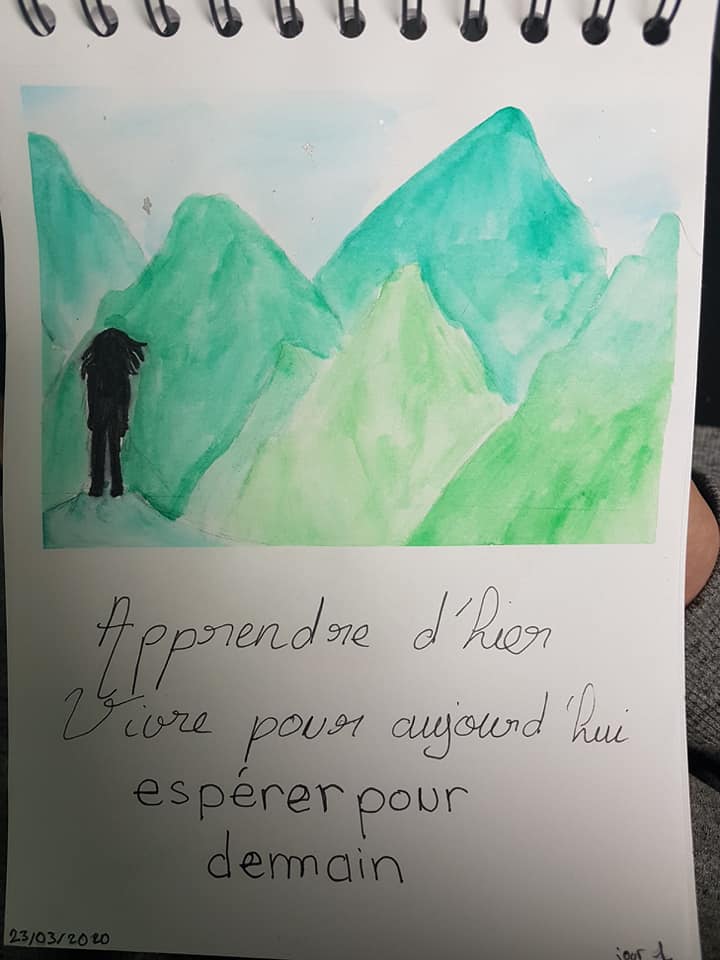 Apprendre d'hier
Vivre pour aujourd'hui
espérer pour
demain
23/03/2020
jour 1